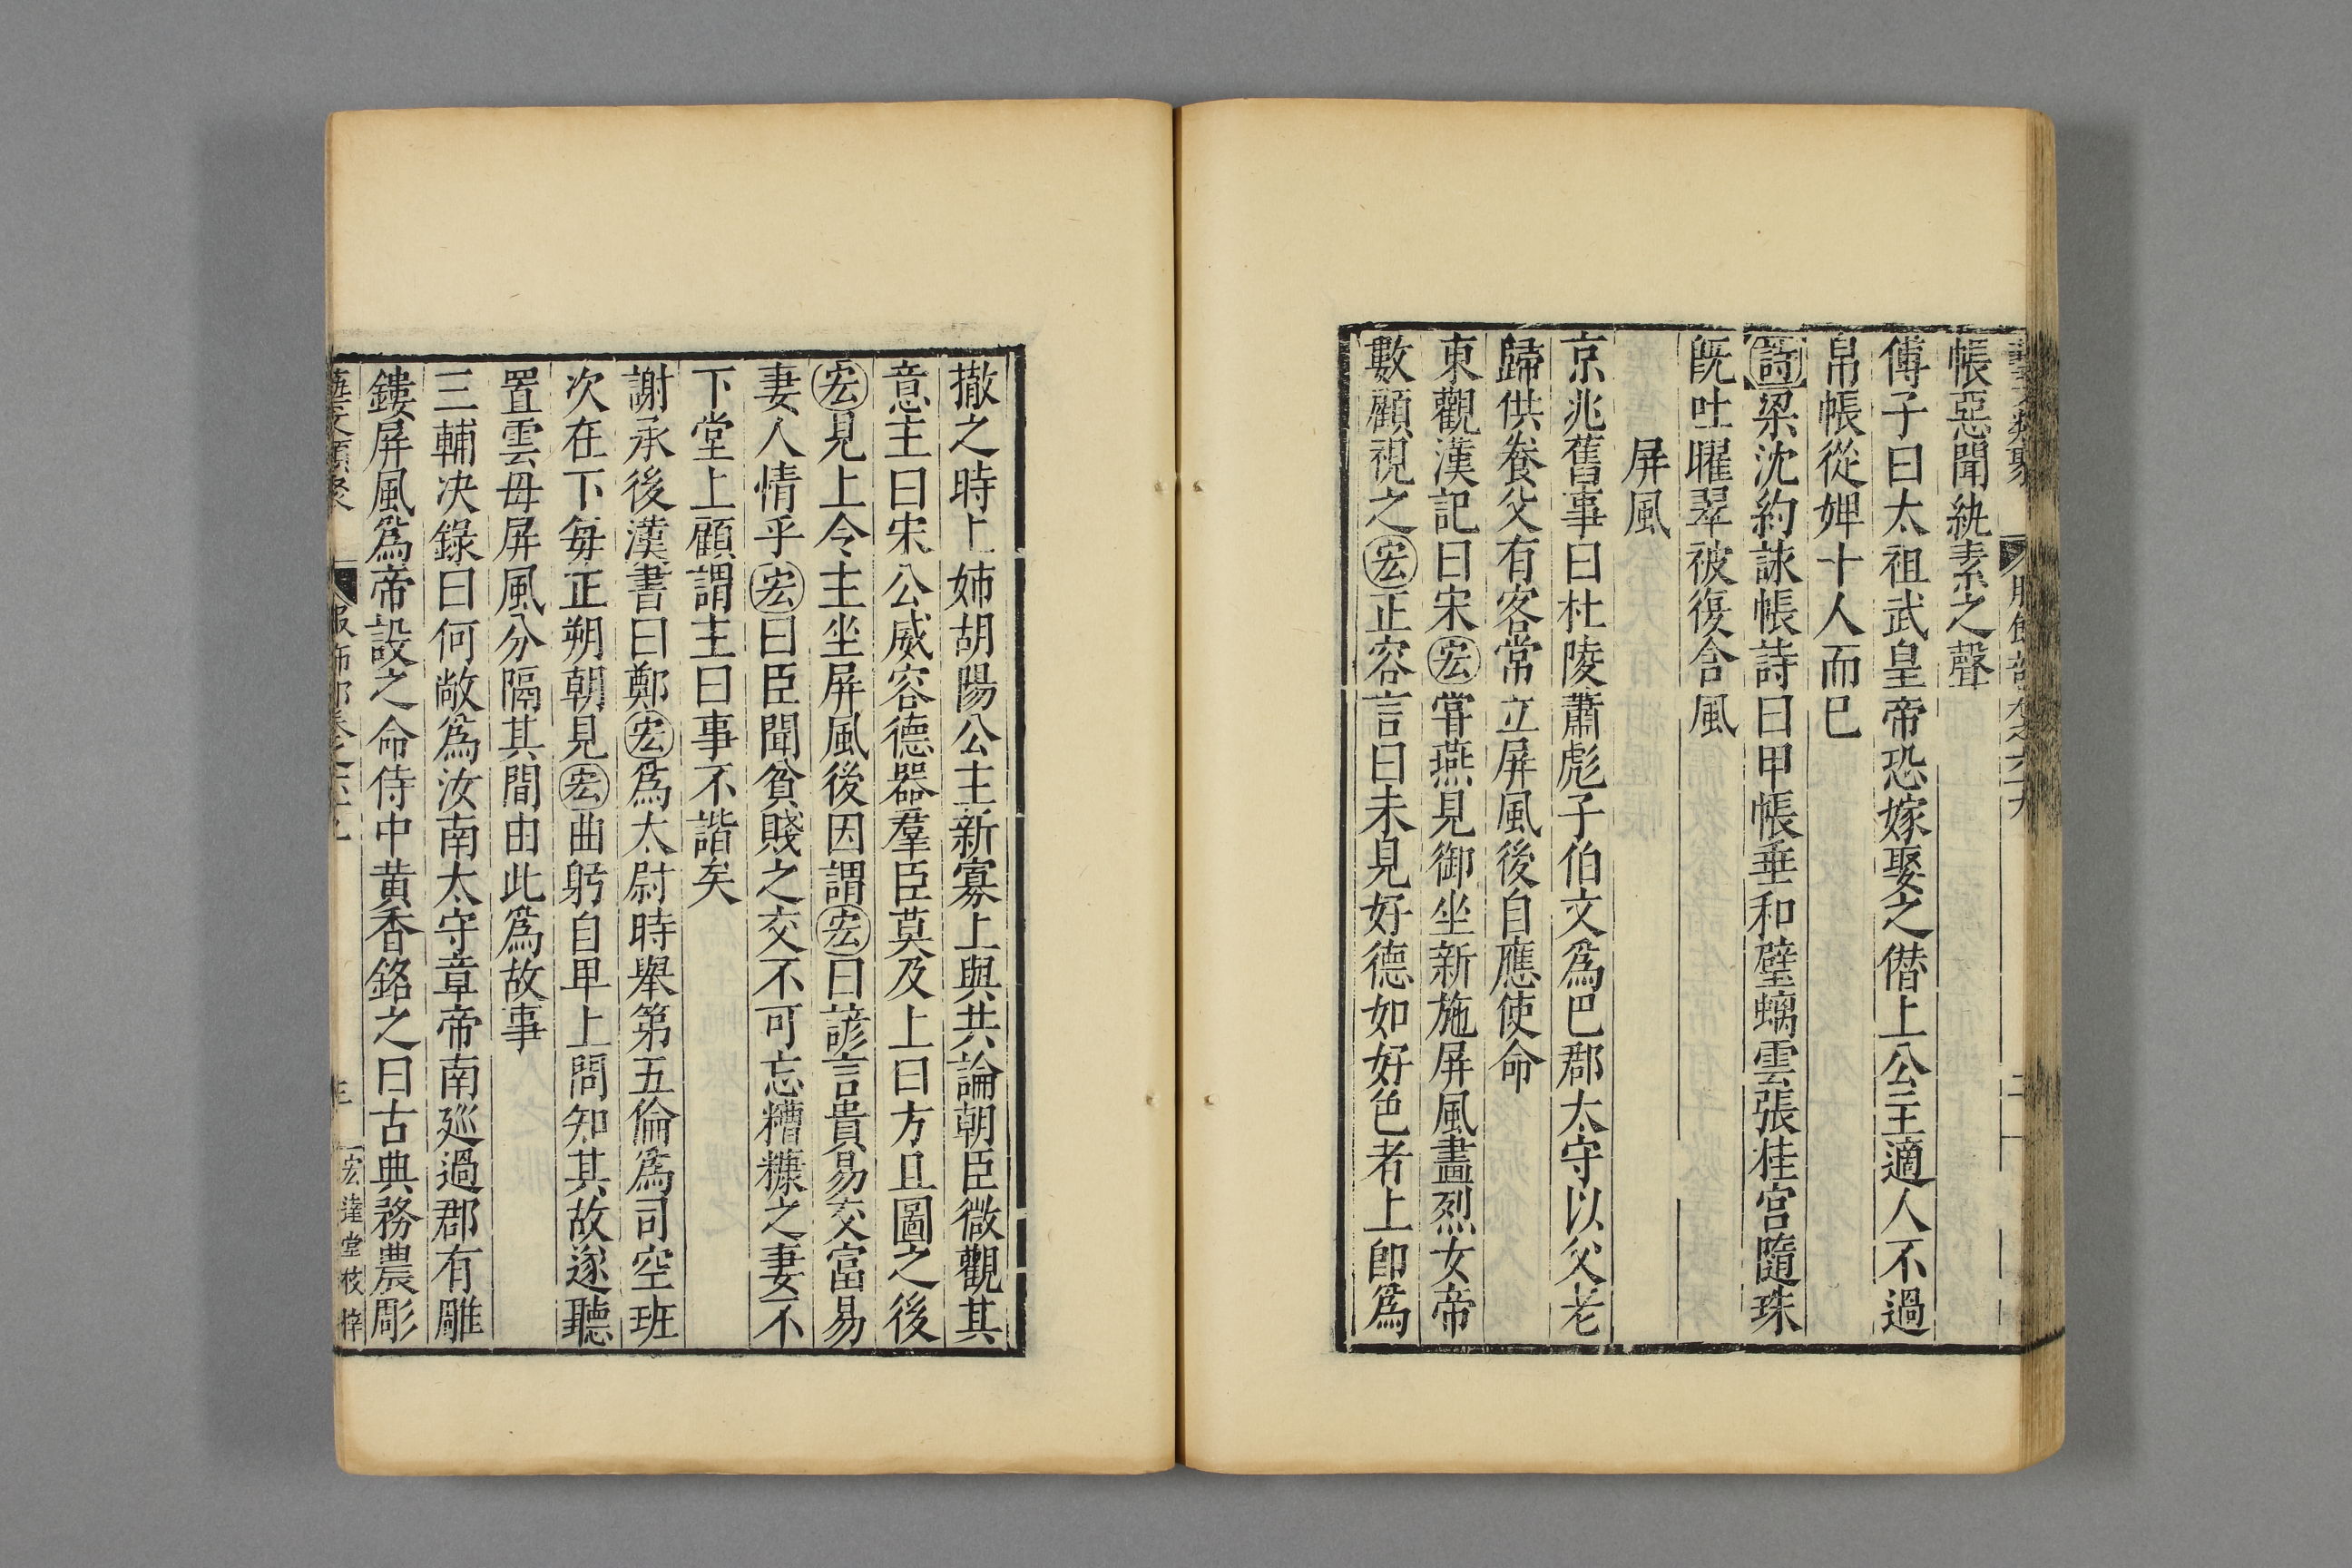 帳惡聞紈素之聲
傅子曰太祖武皇帝恐嫁娶之僭上公主適人不過
帛帳從婢十人而已
詩梁沈約詠帳詩曰甲帳垂和璧螭雲張桂宮隨珠
既吐曜翠被復含風
屏風
京兆舊事曰杜陵蕭彪子伯文爲巴郡太守以父老
歸供養父有客常立屏風後自應使命
東觀漢記曰宋宏甞燕見御坐新施屏風畫烈女帝
數顧視之宏正容言曰未見好德如好色者上即爲
撤之時上姉胡陽公主新寡上與共論朝臣微觀其
意主曰宋公威容德器羣臣莫及上曰方且圖之後
宏見上令主坐屏風後因謂宏曰諺言貴易交富易
妻人情乎宏曰臣聞貧賤之交不可忘糟糠之妻不
下堂上顧謂主曰事不諧矣
謝承後漢書曰鄭宏爲太尉時舉第五倫爲司空班
次在下每正朔朝見宏曲躬自卑上問知其故遂聽
置雲母屏風分隔其間由此爲故事
三輔决錄曰何敞爲汝南太守章帝南廵過郡有雕
鏤屏風爲帝設之命侍中黄香銘之曰古典務農彫
宏達堂校梓